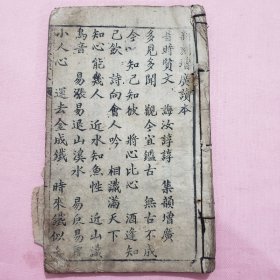 增廣讀本
昔時賢文 誨汝諄諄 集韻增廣
多見多聞 觀今宜鑑古 無古不成
今 知己知彼 將心比心 酒逢知
己飲 詩向會人吟 相識滿天下
知心能幾人 近水知魚性 近山識
鳥音 易漲易退山溪水 易反易覆
小人心 運去金成鐵 時來鐵似